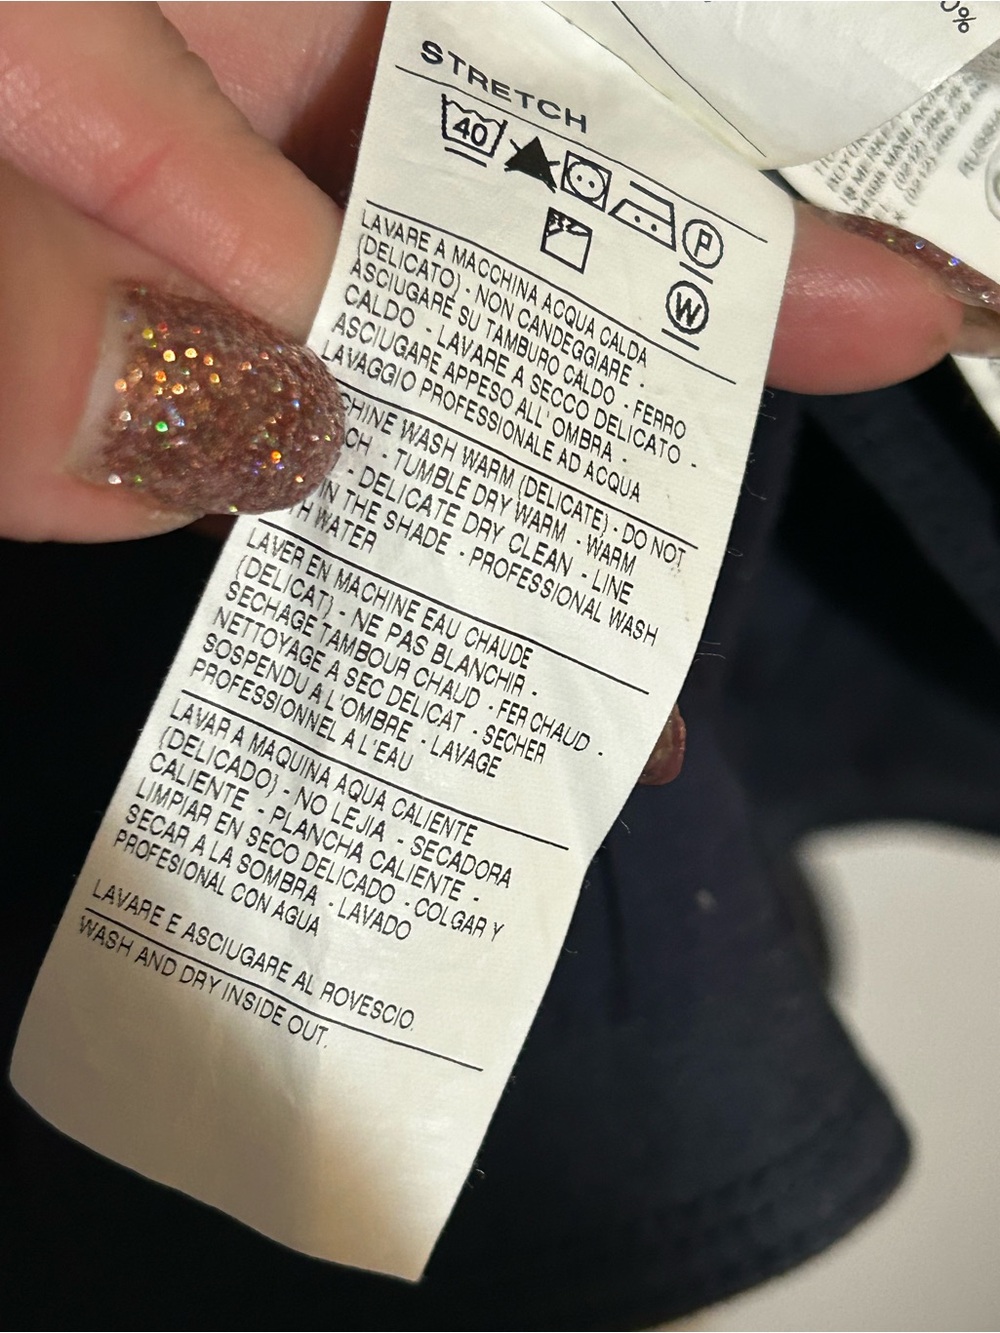 0%
STRETCH
40
P
W
LAVARE A MACCHINA ACQUA CALDA
(DELICATO) - NON CANDEGGIARE -
ASCIUGARE SU TAMBURO CALDO - FERRO
CALDO - LAVARE A SECCO DELICATO -
ASCIUGARE APPESO ALL'OMBRA -
LAVAGGIO PROFESSIONALE AD ACQUA
CHINE WASH WARM (DELICATE) - DO NOT
CH - TUMBLE DRY WARM - WARM
- DELICATE DRY CLEAN - LINE
IN THE SHADE - PROFESSIONAL WASH
TH WATER
LAVER EN MACHINE EAU CHAUDE
(DELICAT) - NE PAS BLANCHIR -
SECHAGE TAMBOUR CHAUD - FER CHAUD -
NETTOYAGE A SEC DELICAT - SECHER
SOSPENDU A L'OMBRE - LAVAGE
PROFESSIONNEL A L'EAU
LAVAR A MAQUINA AQUA CALIENTE
(DELICADO) - NO LEJIA - SECADORA
CALIENTE - PLANCHA CALIENTE -
LIMPIAR EN SECO DELICADO - COLGAR Y
SECAR A LA SOMBRA - LAVADO
PROFESIONAL CON AGUA
LAVARE E ASCIUGARE AL ROVESCIO.
WASH AND DRY INSIDE OUT.